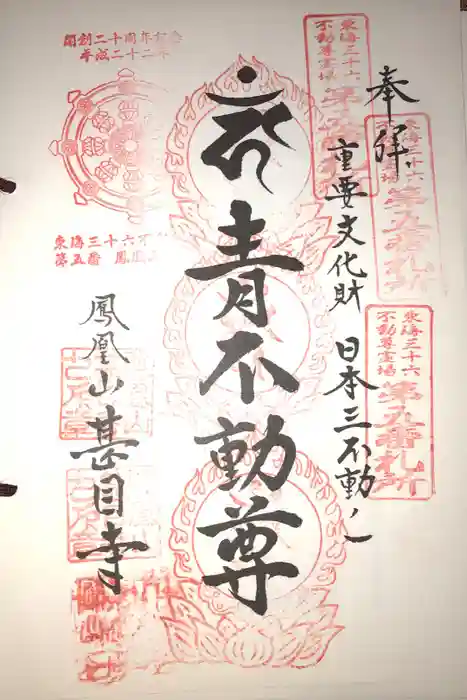 奉拝
重要文化財 日本三不動ノ一
青不動尊
鳳凰山甚目寺
東海三十六
不動尊霊場
第五番札所
東海三十六
不動尊霊場
第五番札所
東海三十六
不動尊霊場
第五番札所
開創二十周年記念
平成二十二年
東海三十六不
第五番 鳳凰山